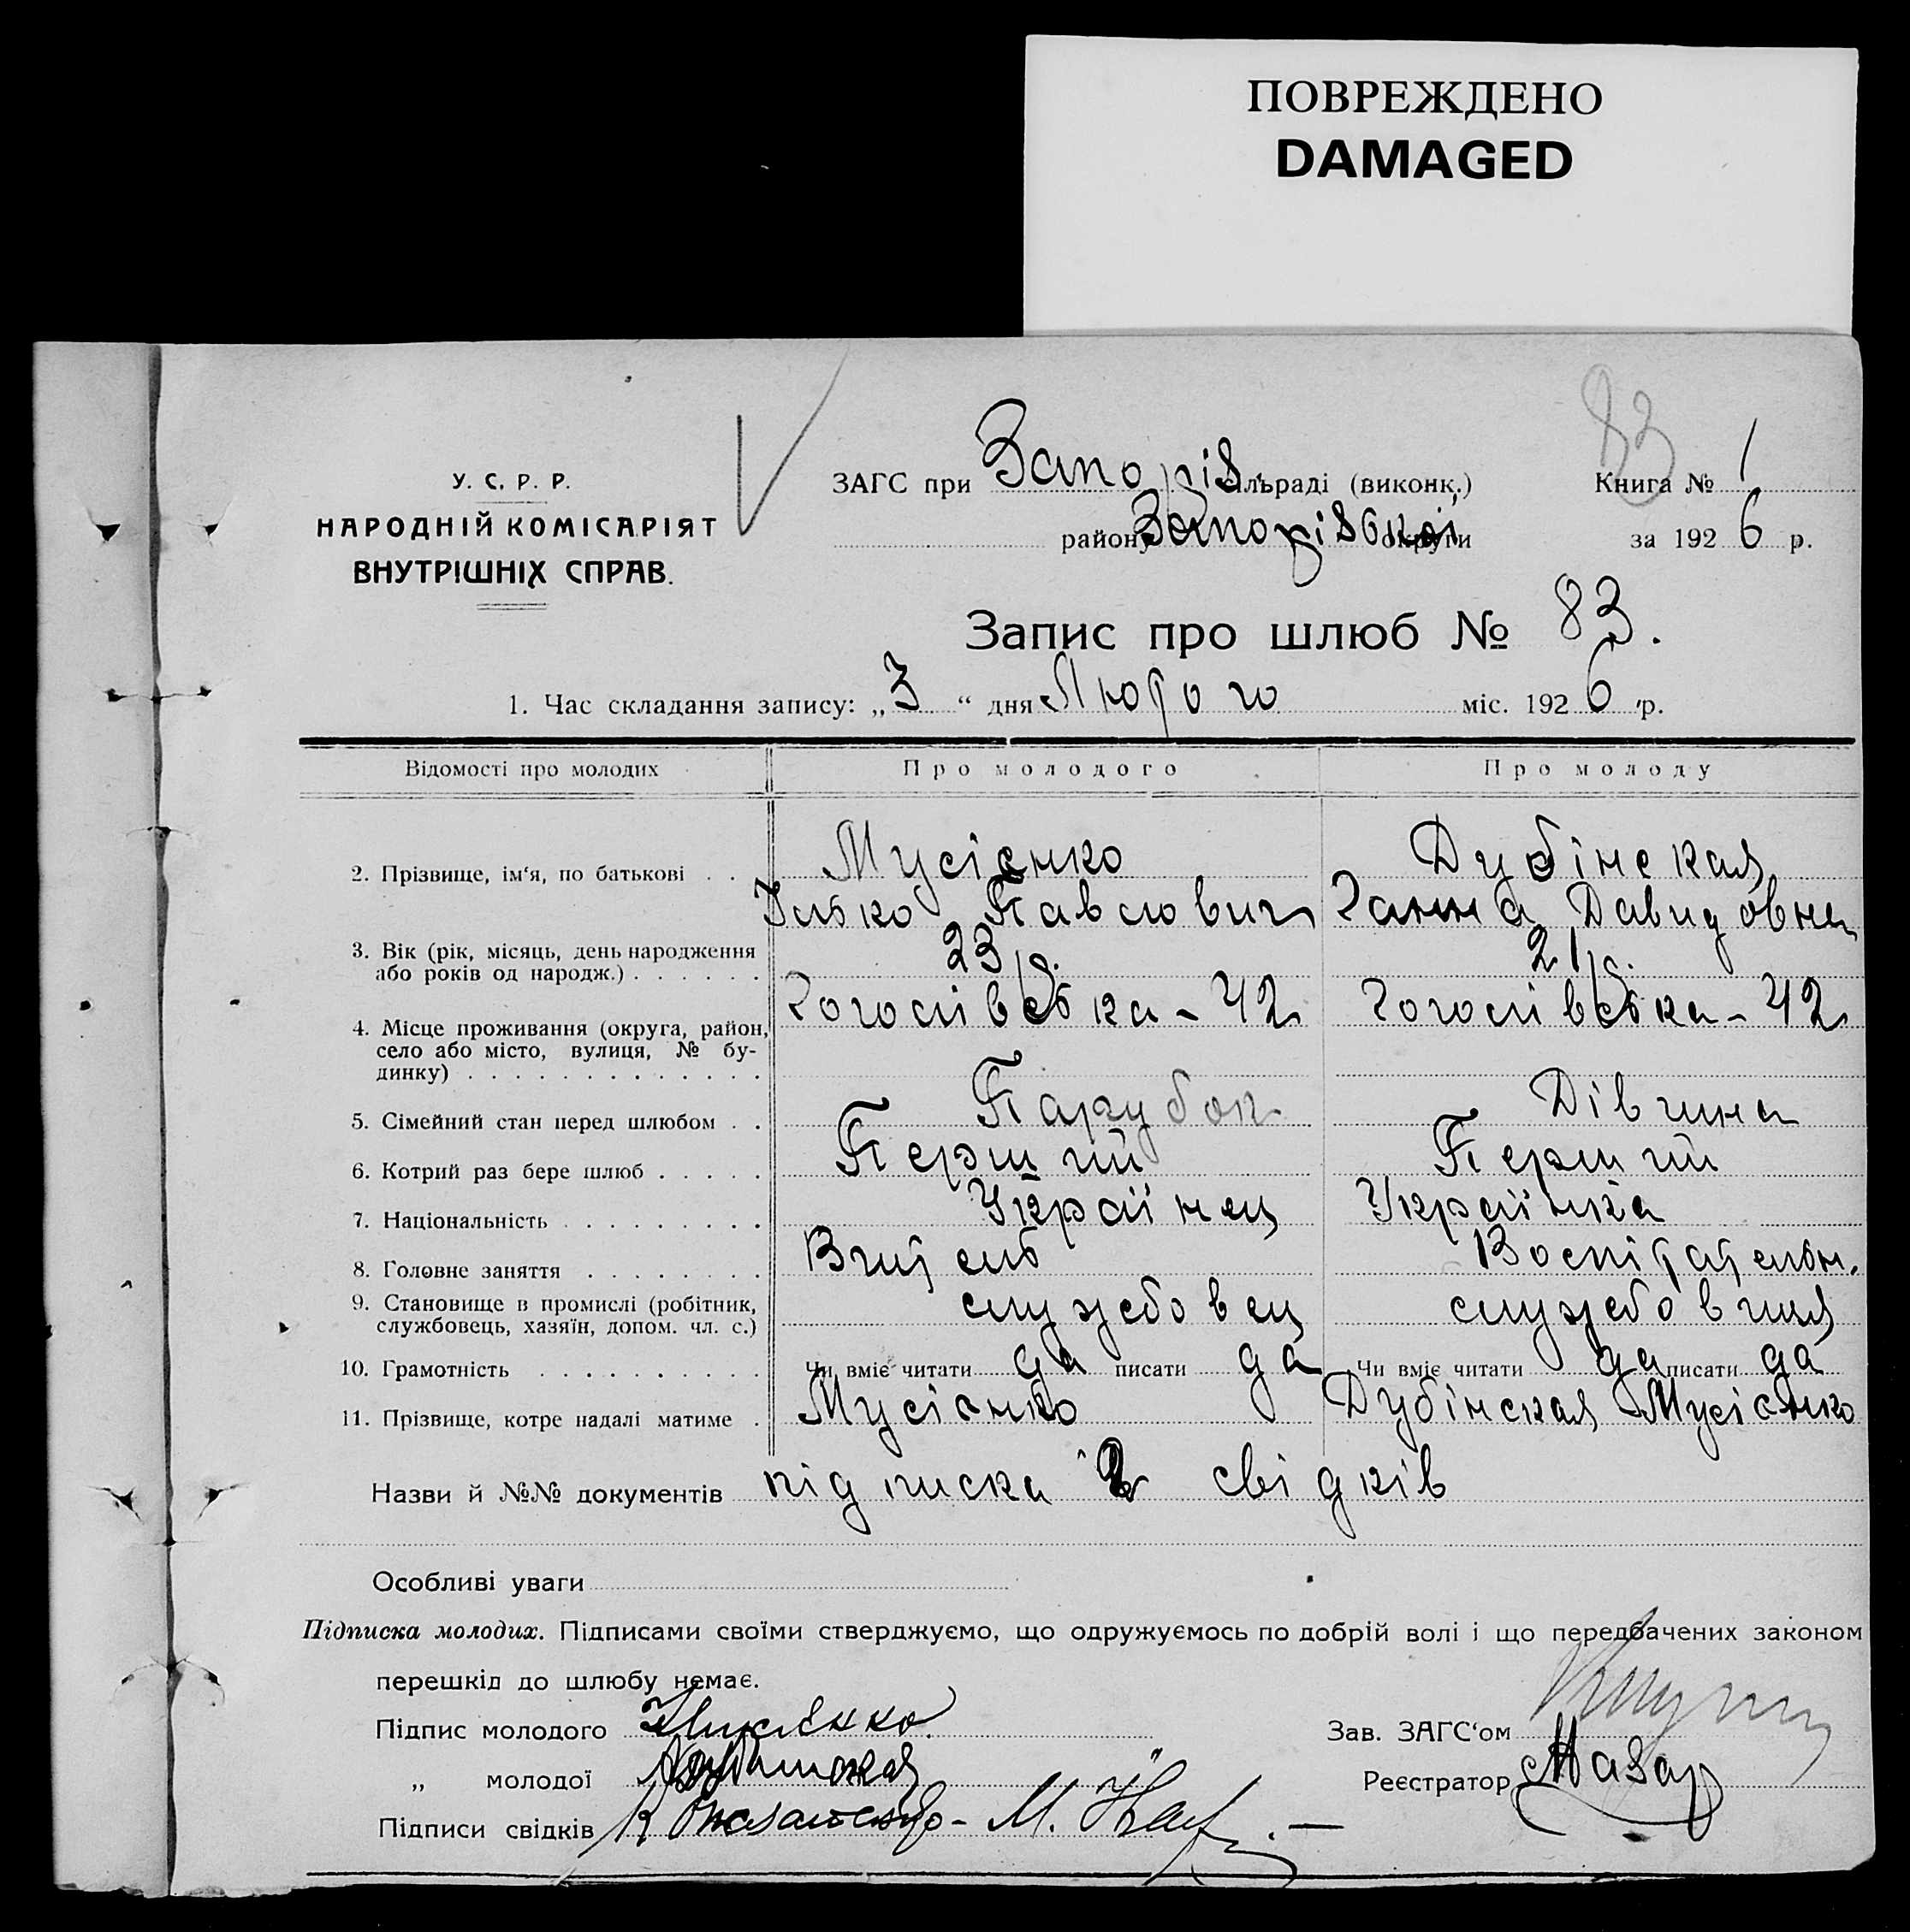 ПОВРЕЖДЕНО
DAMAGED
83
У. С. Р. Р.
НАРОДНІЙ КОМІСАРІЯТ
ВНУТРІШНІХ СПРАВ.
ЗАГС при Запоріз. сільраді (виконк.)
району Запорізької округи
Книга № 1
за 1926 р.
Запис про шлюб № 83.
1. Час складання запису: „3“ дня Лютого міс. 1926 р.
Відомості про молодих Про молодого Про молоду
2. Прізвище, ім‘я, по батькові . . Мусієнко Дубінская
Ілько Павлович Ганна Давидовна
3. Вік (рік, місяць, день народження 23 р. 21 р.
або років од народж.) . . . . . .
4. Місце проживання (округа, район, Гоголівська - 42 Гоголівська - 42
село або місто, вулиця, № бу-
динку) . . . . . . . . . . . . .
5. Сімейний стан перед шлюбом . . Парубок Дівчина
6. Котрий раз бере шлюб . . . . . Перший Перший
7. Національність . . . . . . . . . Українец Українка
8. Головне заняття . . . . . . . . Вчитель Воспітательн.
9. Становище в промислі (робітник, службовец службовиця
службовець, хазяїн, допом. чл. с.)
10. Грамотність . . . . . . . . . . Чи вміє читати да писати да Чи вміє читати да писати да
11. Прізвище, котре надалі матиме . Мусієнко Дубінская Мусієнко
Назви й №№ документів підписка 2 свідків
Особливі уваги
Підписка молодих. Підписами своїми стверджуємо, що одружуємось по добрій волі і що передбачених законом
перешкід до шлюбу немає.
Підпис молодого Імусієнко
Зав. ЗАГС‘ом
„ молодої
Реєстратор Мазар
Підписи свідків М.